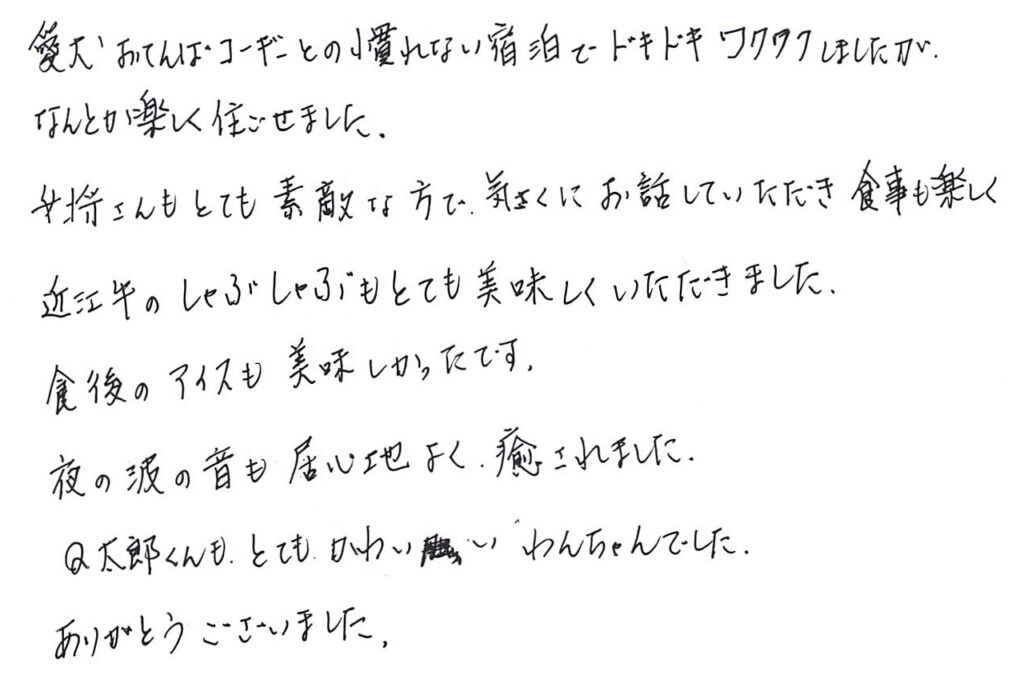 愛犬おてんばコーギーとの慣れない宿泊でドキドキワクワクしましたが、
なんとか楽しく住ごせました。
女将さんもとても素敵な方で、気さくにお話していただき食事も楽しく
近江牛のしゃぶしゃぶもとても美味しくいただきました。
食後のアイスも美味しかったです。
夜の波の音も居心地よく、癒されました。
Q太郎くんも、とても、かわいい わんちゃんでした。
ありがとうございました。